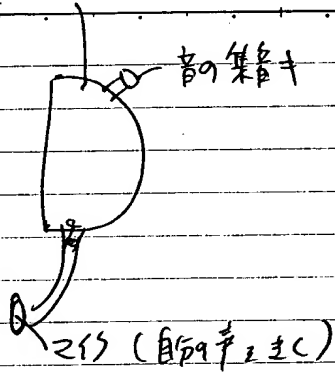 音の集音キ
マイク(自分の声を主く)